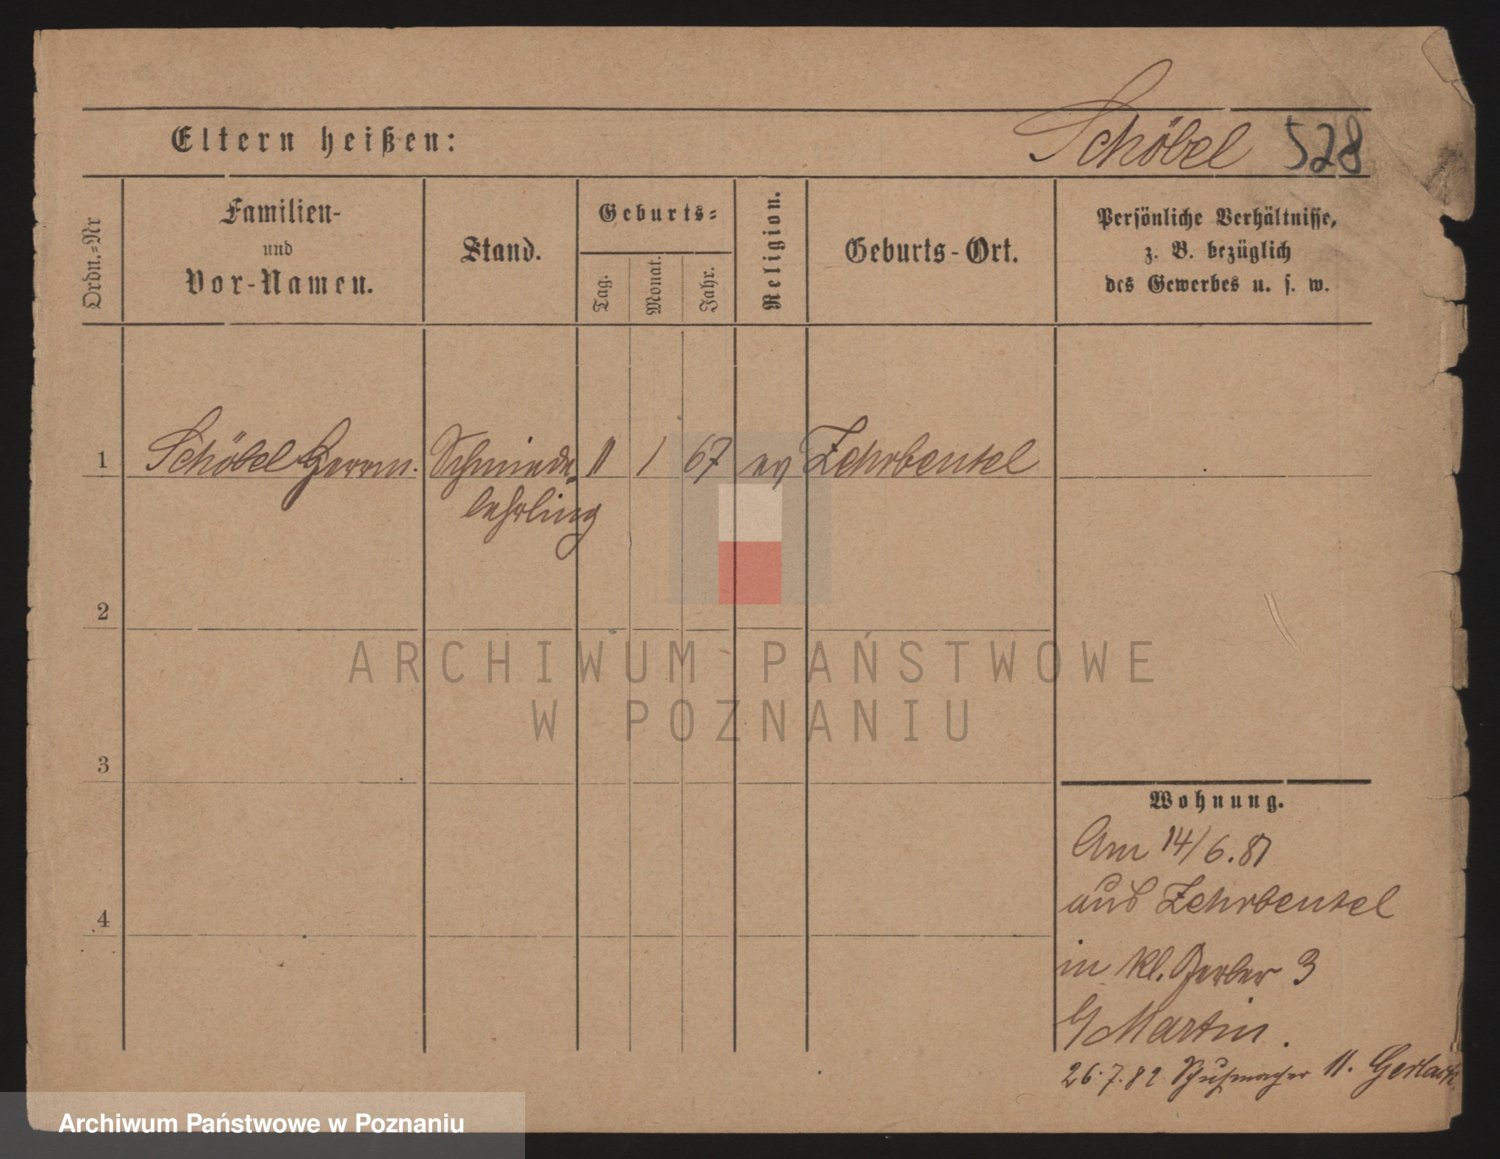 Schöbel 528
Eltern heißen:
Ordn.-Nr
Familien-
und
Vor-Namen.
Stand.
Geburts-
Tag.
Monat.
Jahr.
Religion.
Geburts-Ort.
Persönliche Verhältnisse,
z. B. bezüglich
des Gewerbes u. s. w.
1 Schöbel Herrm. Schmiede- 11 1 67 ev Zehrbeutel
lehrling
2
3
4
Wohnung.
Am 14/6.81
aus Zehrbeutel
in kl. Gerber 3
b/ Martin.
26.7.82 Schuhmacher 11. Gerlach
ARCHIWUM PAŃSTWOWE
W POZNANIU
Archiwum Państwowe w Poznaniu